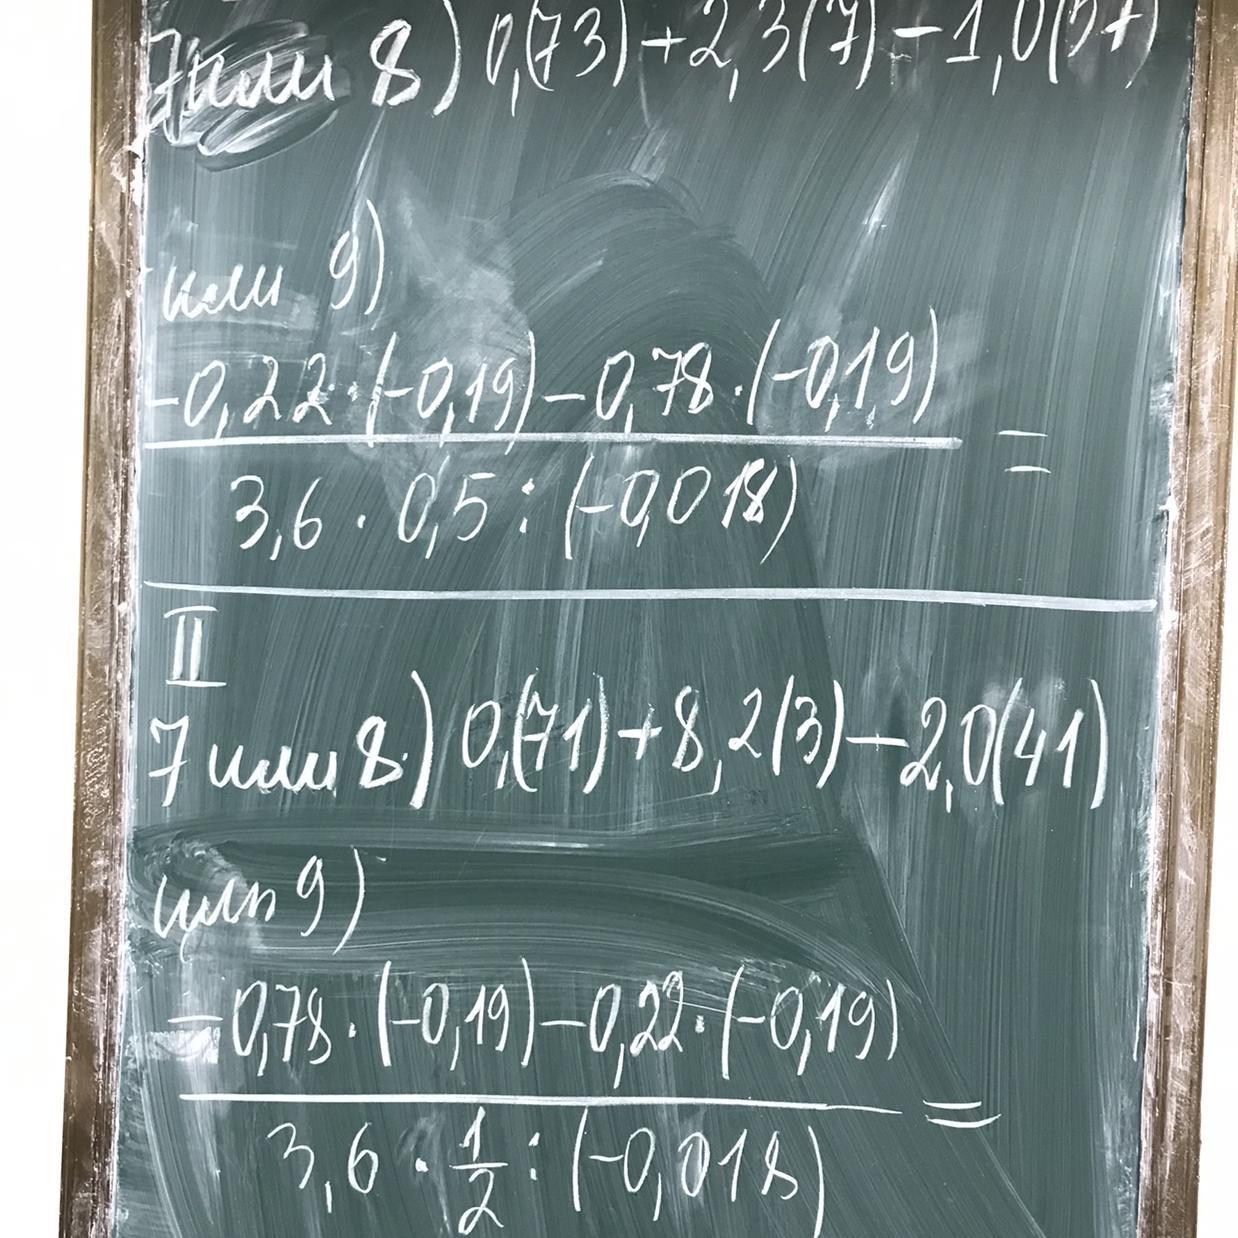 7 или 8) 0,(73)+2,3(7)-1,0(57)
или 9)
-0,22·(-0,19)-0,78·(-0,19)
=
3,6 · 0,5 : (-0,018)
II
7 или 8) 0,(71)+8,2(3)-2,0(41)
или 9)
-0,78·(-0,19)-0,22·(-0,19)
=
3,6 · 1/2 : (-0,018)